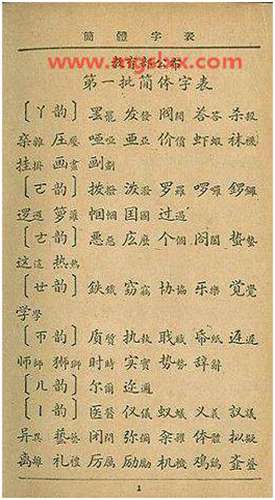 簡體字表
教育部公布
第一批简体字表
〔丫韵〕 罢罷 发發 阀閥 答荅 杀殺
杂雜 压壓 哑啞 亚亞 价價 虾蝦 袜襪
挂掛 画畫 划劃
〔ㄛ韵〕 拨撥 泼潑 罗羅 啰囉 锣鑼
逻邏 箩籮 帼幗 国國 过過
〔ㄜ韵〕 恶惡 庅麽 个個 阁閣 蛰蟄
这這 热熱
〔ㄝ韵〕 鉄鐵 窃竊 协協 乐樂 觉覺
学學
〔ㄭ韵〕 质質 执執 职職 帋紙 迟遲
师師 狮獅 时時 实實 势勢 辞辭
〔ㄦ韵〕 尔爾 迩邇
〔丨韵〕 医醫 仪儀 蚁蟻 义義 议議
异異 艺藝 闭閉 弥彌 体體 拟擬
离離 礼禮 厉厲 励勵 机機 鸡鷄
1